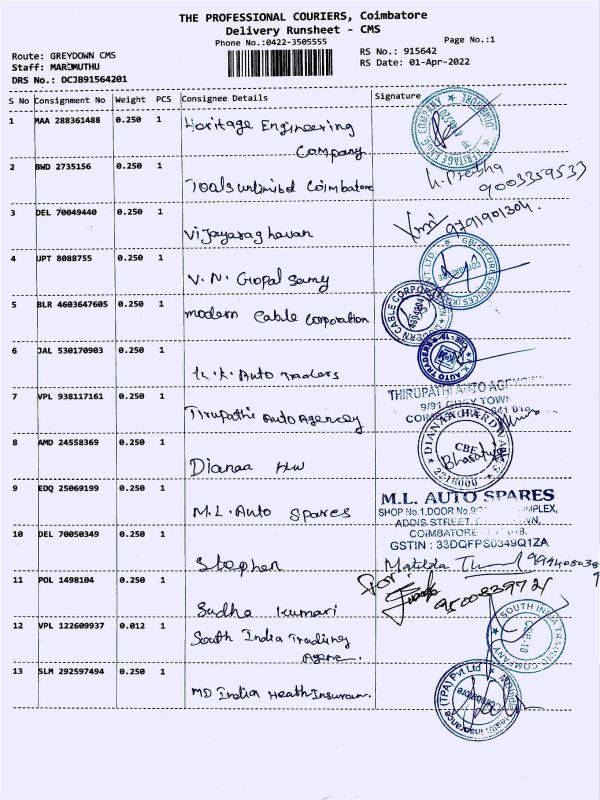 THE PROFESSIONAL COURIERS, Coimbatore
Delivery Runsheet - CMS
Phone No.:0422-3505555
Page No.:1
Route: GREYDOWN CMS
Staff: MARIMUTHU
DRS No.: DCJB91564201
RS No.: 915642
RS Date: 01-Apr-2022
S No Consignment No Weight PCS Consignee Details Signature
1 MAA 288361488 0.250 1 Heritage Engineering
Company
2 BWD 2735156 0.250 1 Toolsunlimited Coimbatore
K. Prabha
9003359533
3 DEL 70049440 0.250 1 Vijayaraghavan
9791901304.
4 UPT 8088755 0.250 1 V. N. Gopal Samy
5 BLR 4603647605 0.250 1 modern Cable Corporation
MODERN CABLE CORPORATION
6 JAL 530170903 0.250 1 K.K. Auto Traders
AUTO TRADERS
7 VPL 938117161 0.250 1 Tirupathi Auto Agency
THIRUPATHI AUTO AGENCY
9/91 GREY TOWN
8 AMD 24558369 0.250 1 Dianaa HW
DIANAA HARDWARES
CBE
Bharati
2216000
9 EDQ 25069199 0.250 1 M.L. Auto Spares
M.L. AUTO SPARES
SHOP No.1, DOOR No.9/ COMPLEX,
ADDIS STREET,
COIMBATORE
GSTIN : 33DQFPS0349Q1ZA
10 DEL 70050349 0.250 1 Stephen
Matilda
11 POL 1498104 0.250 1 Sudha Kumari
For
9500839721
12 VPL 122609937 0.012 1 South India Trading
Agenc.
SOUTH INDIA TRADING COMPANY
CBE-18
13 SLM 292597494 0.250 1 MD India Heath Insuran.
MDIndia Health Insurance (TPA) Pvt Ltd
Coimbatore